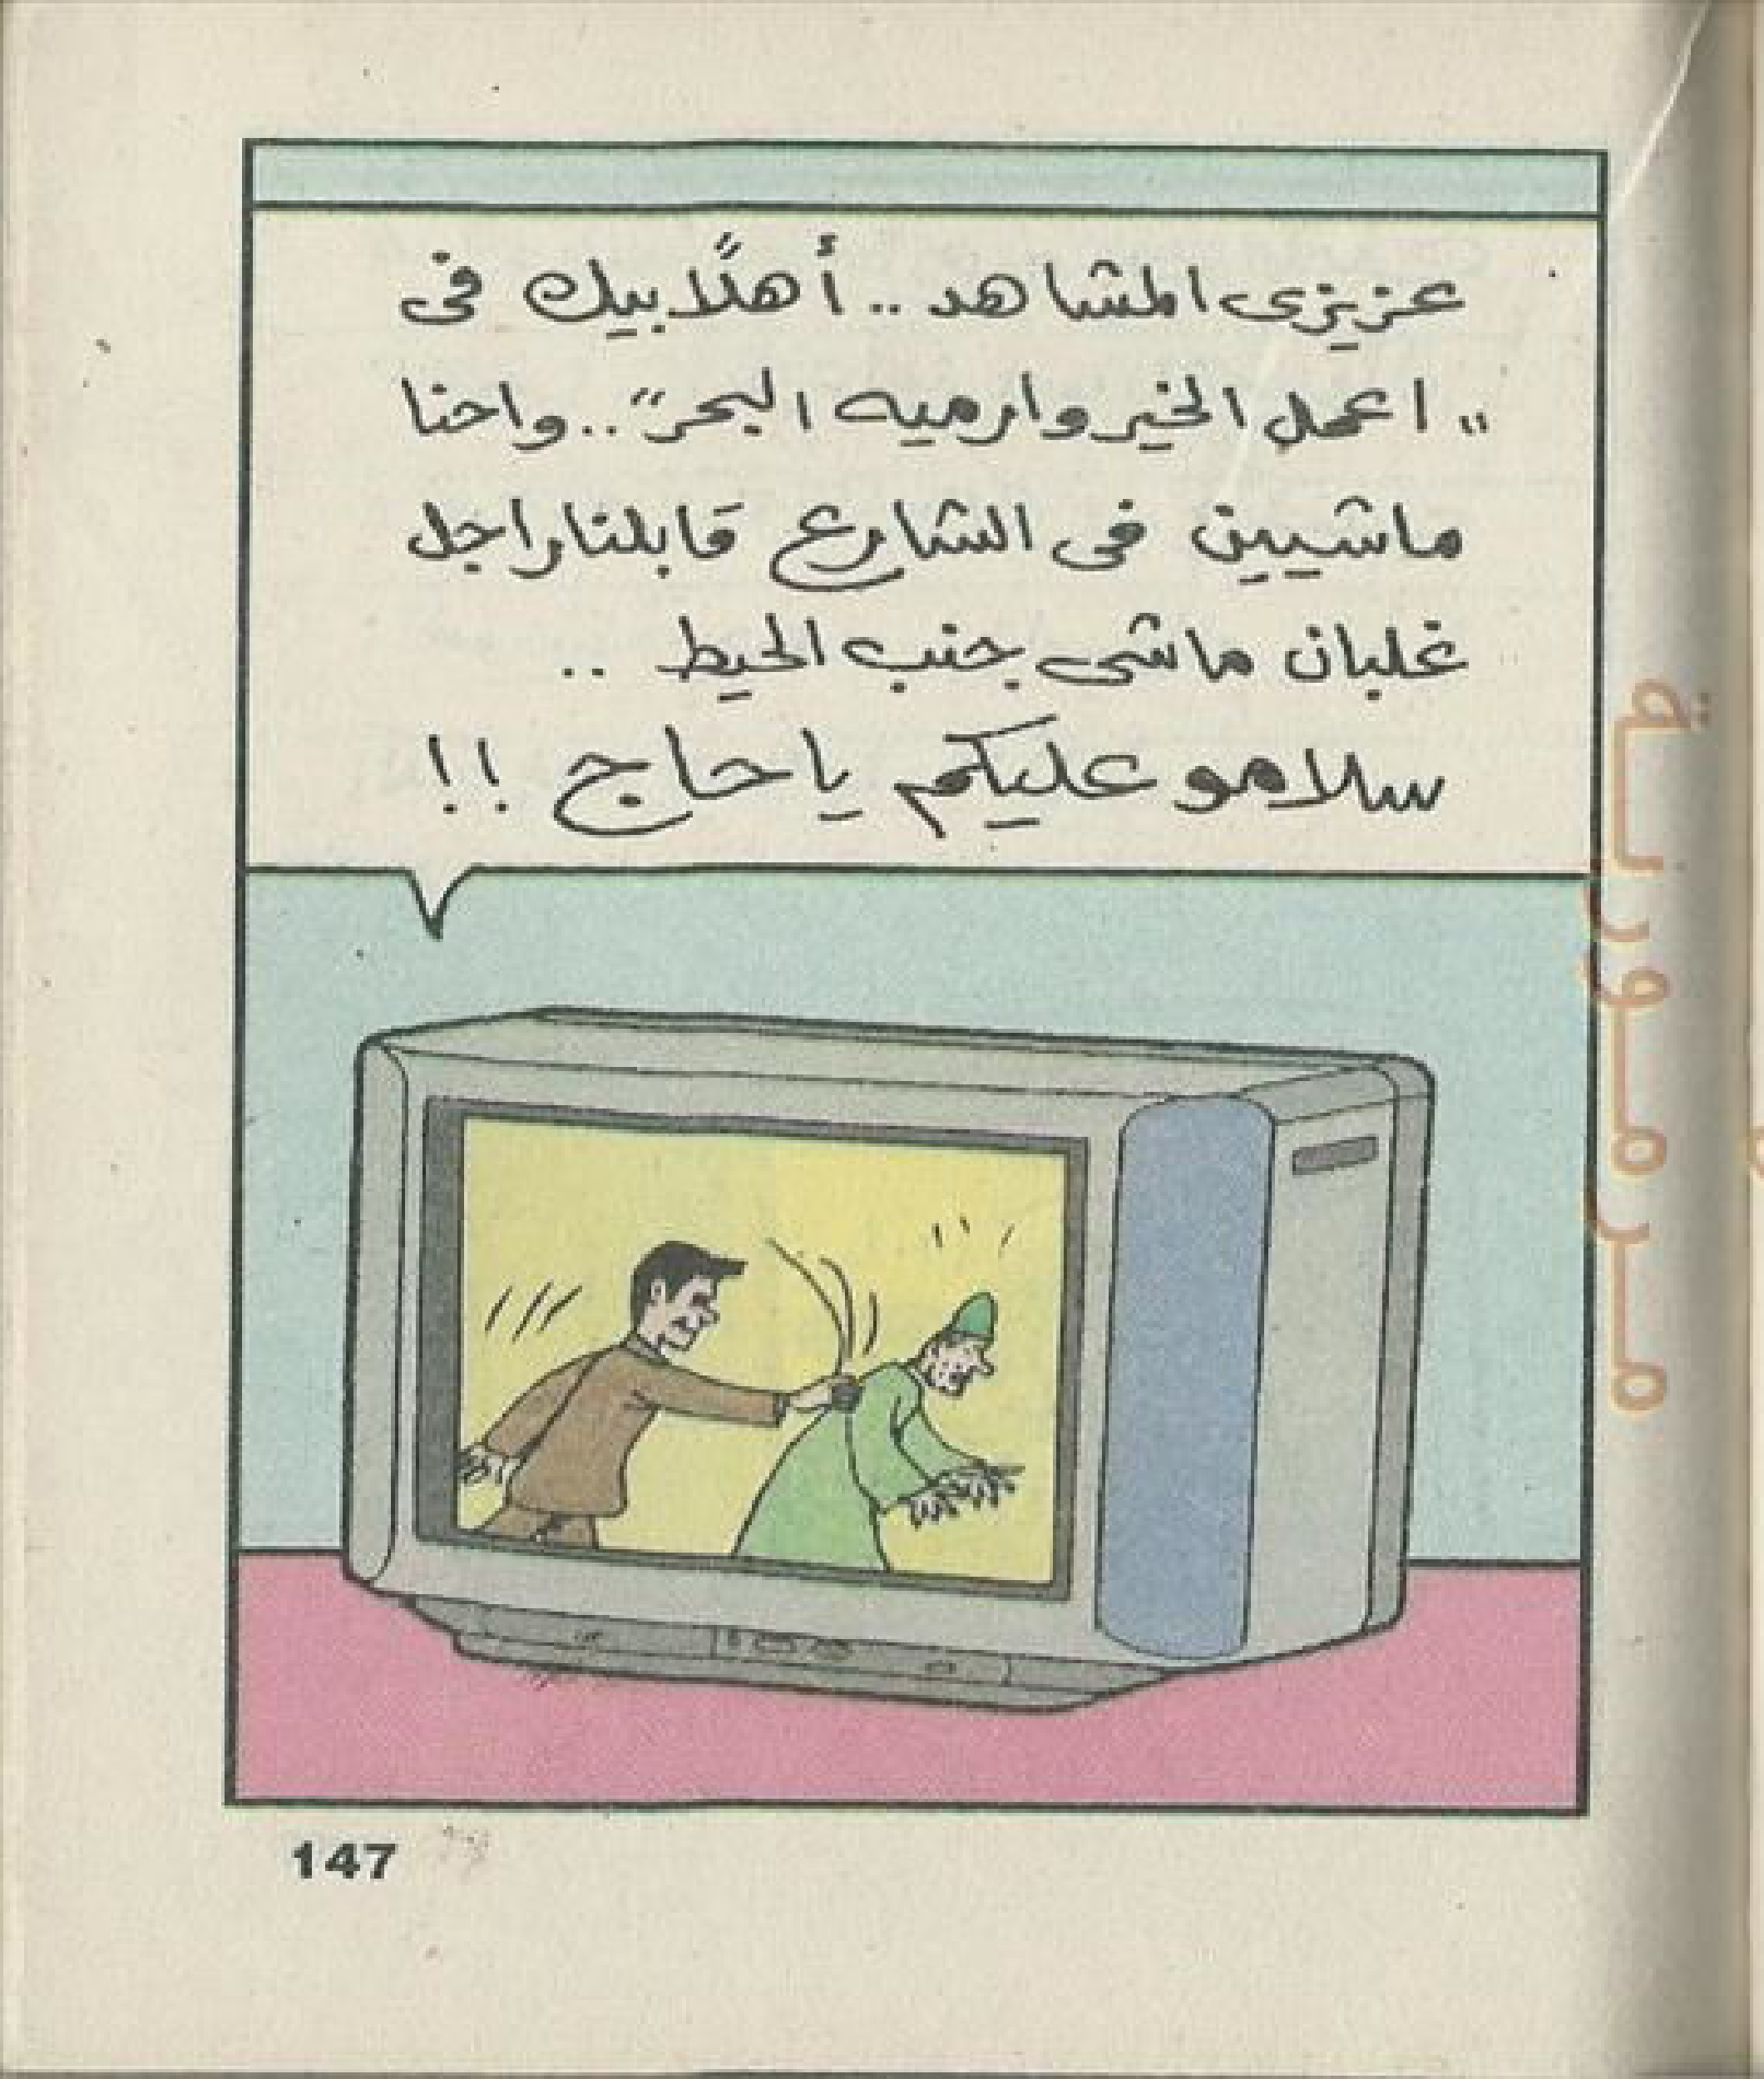 عزيزى المشاهد .. أهلاً بيك فى
"اعمل الخير وارميه البحر" .. واحنا
ماشيين فى الشارع قابلنا راجل
غلبان ماشى جنب الحيط ..
سلامو عليكم يا حاج !!
147
مرمورية